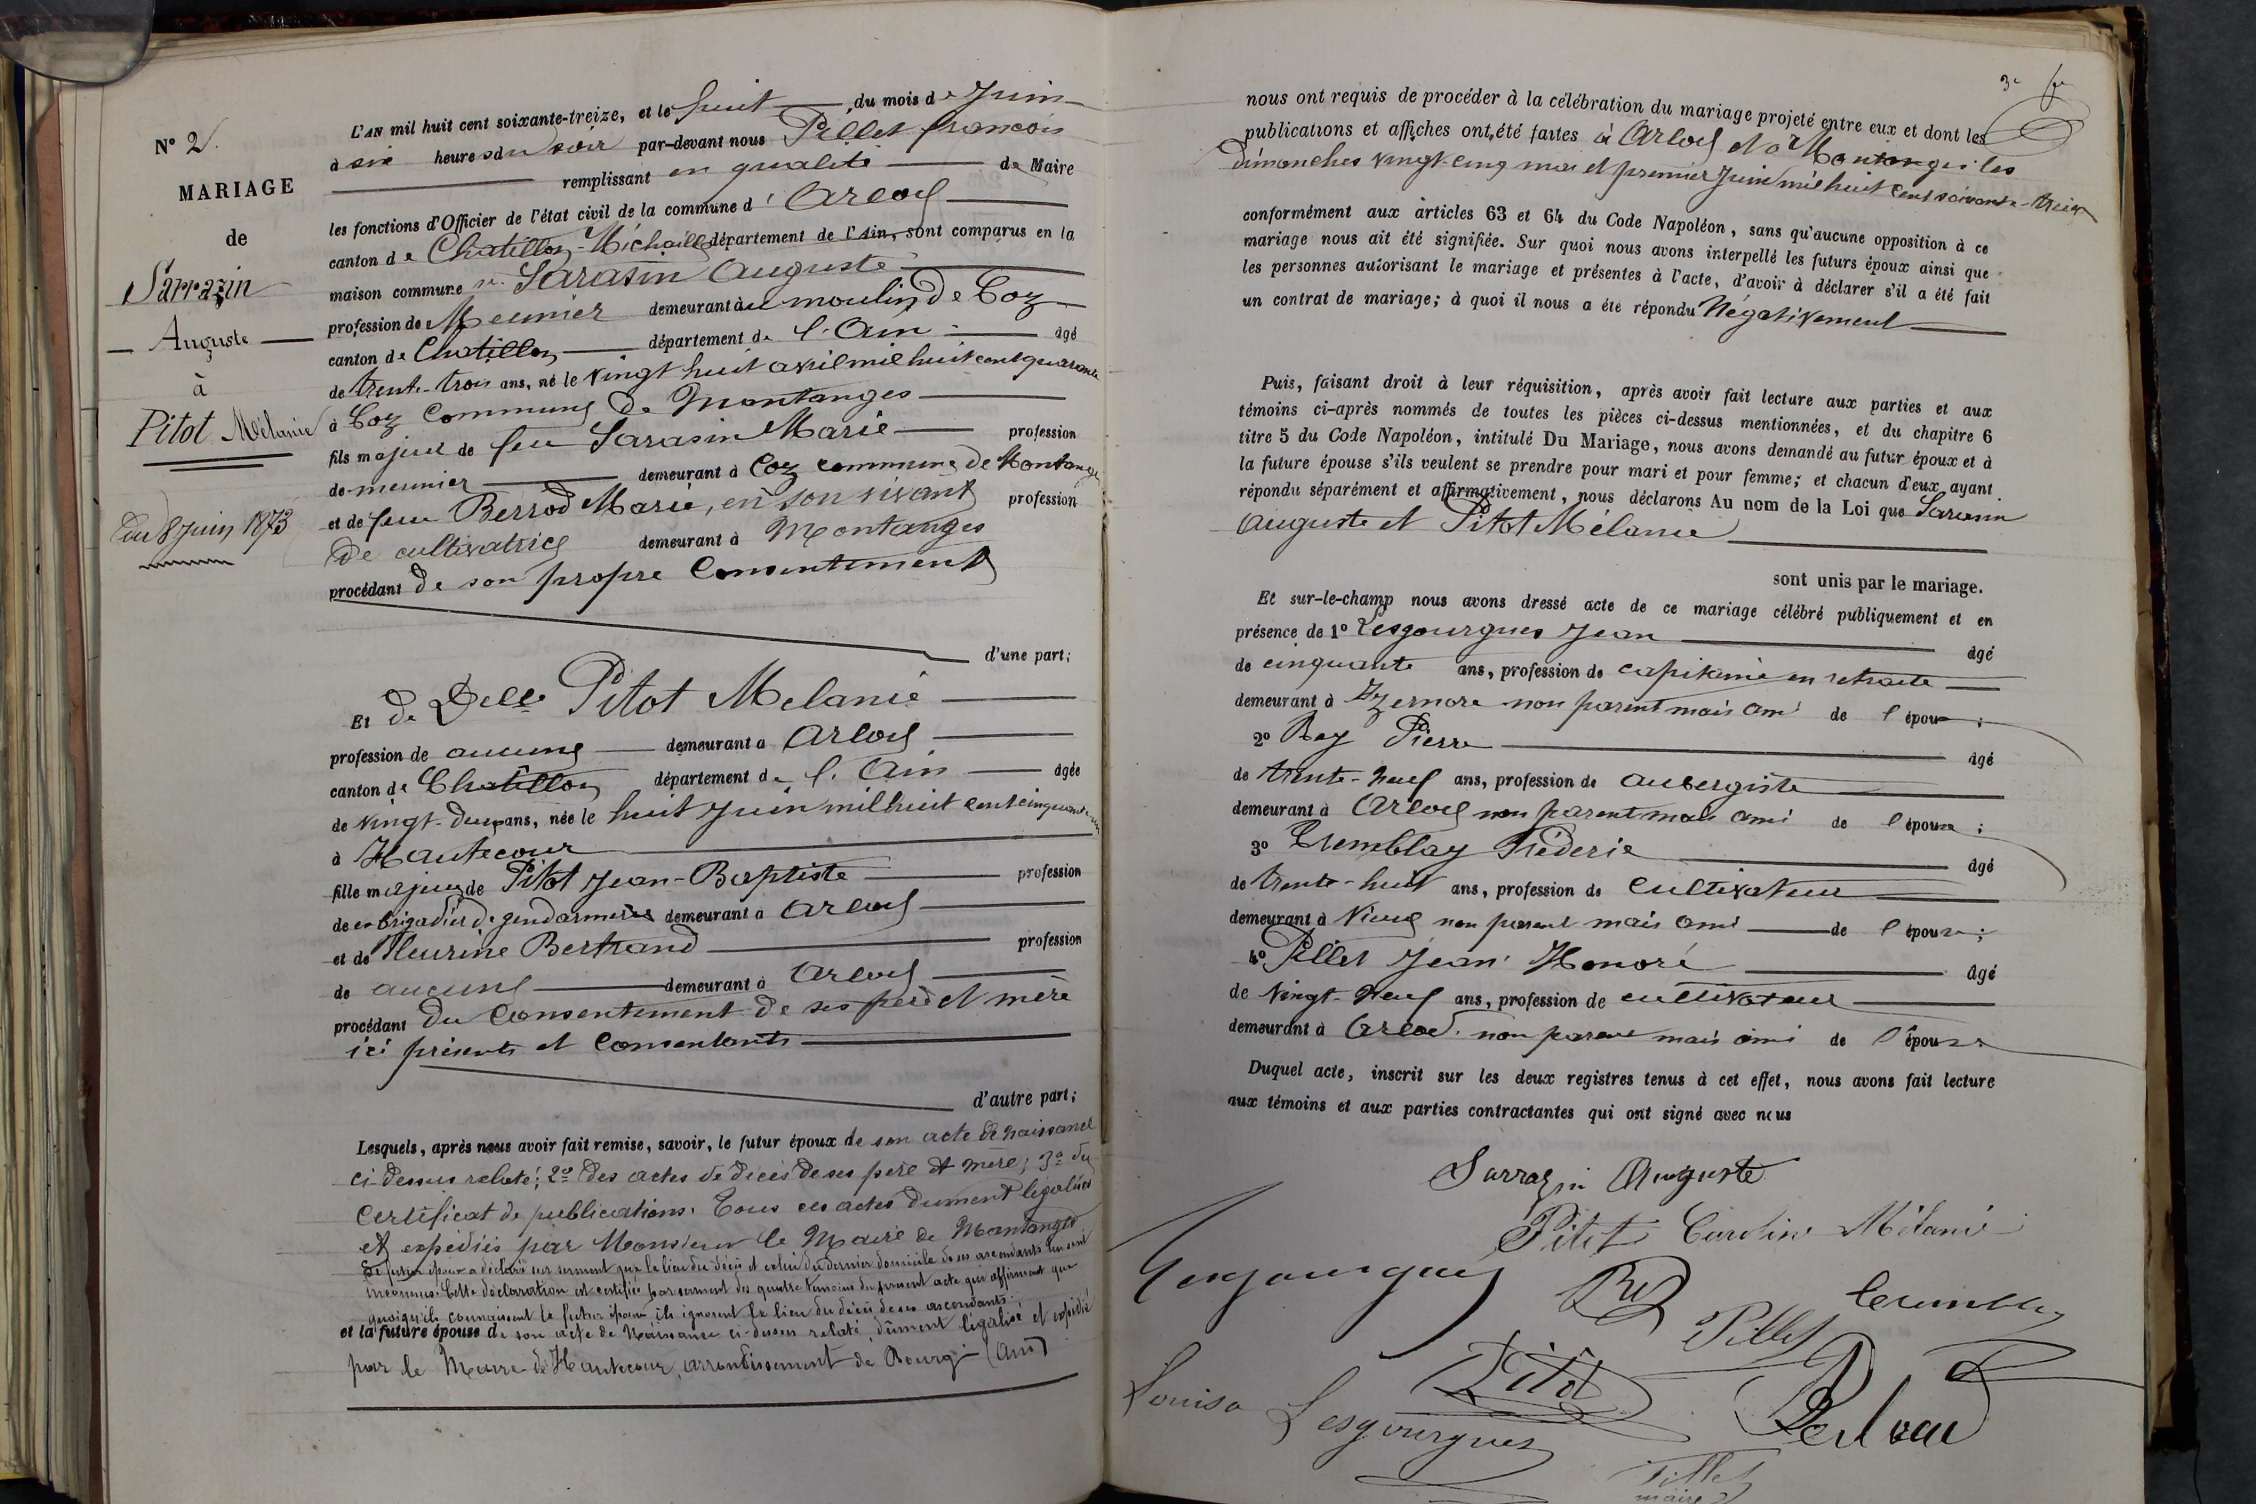 N° 2.
MARIAGE
de
Sarrazin
Auguste
à
Pitot Mélanie
du 8 juin 1873
L'AN mil huit cent soixante-treize, et le huit du mois de Juin
à six heures du soir par-devant nous Pillet françois
remplissant en qualité de Maire
les fonctions d'Officier de l'état civil de la commune d'Arlod
canton de Chatillon-Michaille département de l'Ain, sont comparus en la
maison commune Sarasin Auguste
profession de Meunier demeurant au moulin de Coz
canton de Chatillon département de l'Ain âgé
de trente-trois ans, né le vingt huit avril mil huit cent quarante
à Coz Commune de Montanges
fils majeur de feu Sarasin Marie profession
de meunier demeurant à Coz commune de Montanges
et de feue Berrod Marie, en son vivant profession
de cultivatrice demeurant à Montanges
procédant de son propre Consentement
d'une part;
Et de Delle Pitot Melanie
profession de aucune demeurant à Arlod
canton de Chatillon département de l'Ain âgée
de vingt-deux ans, née le huit Juin mil huit cent cinquante un
à Hautecour
fille majeure de Pitot Jean-Baptiste profession
de ex brigadier de gendarmerie demeurant à Arlod
et de Fleurine Bertrand profession
de aucune demeurant à Arlod
procédant du Consentement de ses père et mère
ici présents et Consentants
d'autre part;
Lesquels, après nous avoir fait remise, savoir, le futur époux de son acte de naissance
ci-dessus relaté; 2° des actes de décès de ses père et mère; 3° du
Certificat de publications. Tous ces actes dument légalisés
et expédiés par Monsieur le Maire de Montanges
Le futur époux a déclaré sur serment que le lieu du décès et celui du dernier domicile de ses ascendants lui sont
inconnus. Cette déclaration est certifiée par serment des quatre témoins du présent acte qui affirment que
quoiqu'ils connaissent le futur époux, ils ignorent le lieu du décès de ses ascendants.
et la future épouse de son acte de Naissance ci-dessus relaté, dûment légalisé et expédié
par le Maire de Hautecour, arrondissement de Bourg (Ain)
3e
nous ont requis de procéder à la célébration du mariage projeté entre eux et dont les
publications et affiches ont été faites à Arlod et à Montanges les
dimanches vingt-cinq mai et premier Juin mil huit cent soixante-treize
conformément aux articles 63 et 64 du Code Napoléon, sans qu'aucune opposition à ce
mariage nous ait été signifiée. Sur quoi nous avons interpellé les futurs époux ainsi que
les personnes autorisant le mariage et présentes à l'acte, d'avoir à déclarer s'il a été fait
un contrat de mariage; à quoi il nous a été répondu Négativement
Puis, faisant droit à leur réquisition, après avoir fait lecture aux parties et aux
témoins ci-après nommés de toutes les pièces ci-dessus mentionnées, et du chapitre 6
titre 5 du Code Napoléon, intitulé Du Mariage, nous avons demandé au futur époux et à
la future épouse s'ils veulent se prendre pour mari et pour femme; et chacun d'eux ayant
répondu séparément et affirmativement, nous déclarons Au nom de la Loi que Sarasin
Auguste et Pitot Mélanie
sont unis par le mariage.
Et sur-le-champ nous avons dressé acte de ce mariage célébré publiquement et en
présence de 1° Lesgourgues Jean âgé
de cinquante ans, profession de capitaine en retraite
demeurant à Izernore non parent mais ami de l'époux;
2° Rey Pierre âgé
de trente-neuf ans, profession de aubergiste
demeurant à Arlod non parent mais ami de l'épouse;
3° Tremblay Fréderic âgé
de trente-huit ans, profession de Cultivateur
demeurant à non parent mais ami de l'épouse;
4° Pillet Jean Honoré âgé
de vingt-neuf ans, profession de cultivateur
demeurant à Arlod non parent mais ami de l'épouse
Duquel acte, inscrit sur les deux registres tenus à cet effet, nous avons fait lecture
aux témoins et aux parties contractantes qui ont signé avec nous
Sarrazin Auguste
Pitot Caroline Mélanie
Lesgourgues
Rey Tremblay
Pillet
Pitot
Louisa Lesgourgues
Pillet
maire